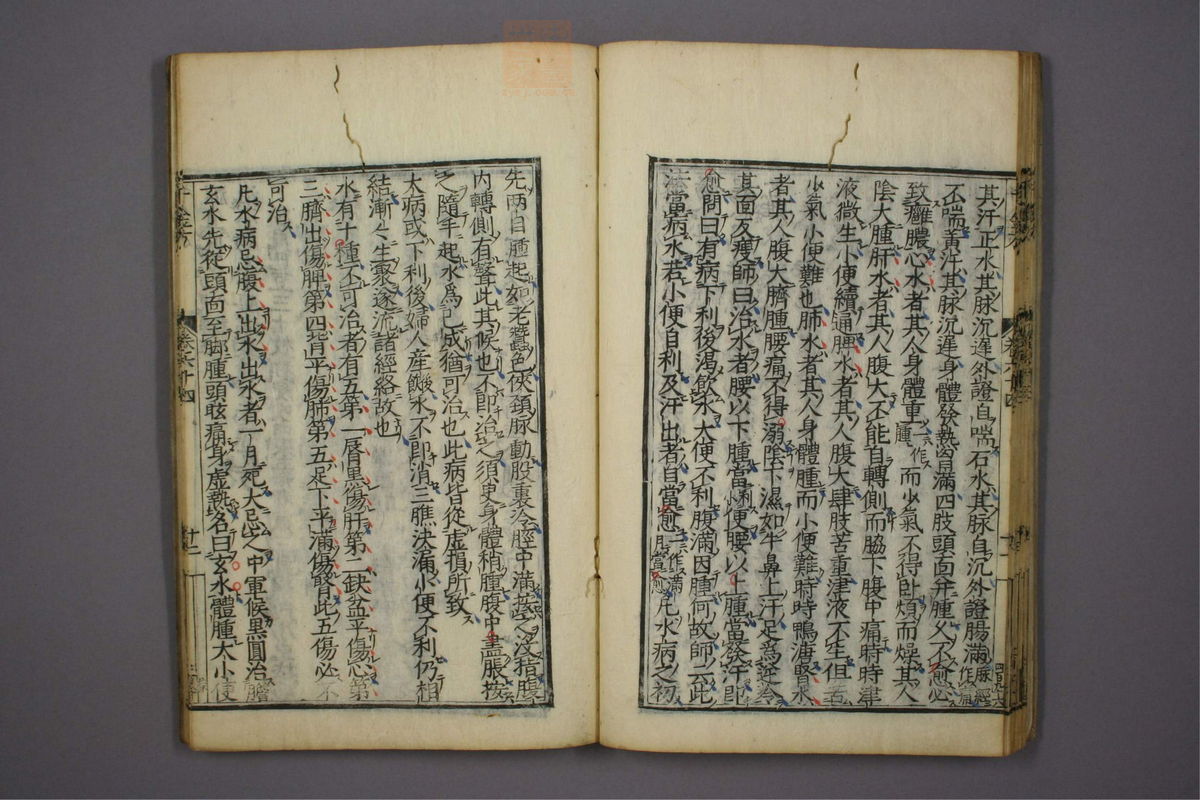 其汗正水其脉沉遲外證自喘石水其脉自沉外證腸滿脉經作腹
不喘黃汗其脉沉遲身體發熱胷滿四肢頭面并腫久不愈必
致癰膿心水者其人身體重一作腫而少氣不得卧煩而燥其人
陰大腫肝水者其人腹大不能自轉側而脇下腹中痛時時津
液微生小便續通脾水者其人腹大四肢苦重津液不生但苦
少氣小便難也肺水者其人身體腫而小便難時時鴨溏腎水
者其人腹大臍腫腰痛不得溺陰下濕如牛鼻上汗足爲逆冷
其面反瘦師曰治水者腰以下腫當利小便腰以上腫當發汗即
愈問曰有病下利後渴飲水大便不利腹滿因腫何故師云此
法當病水若小便自利及汗出者自當愈一作滿月當愈凡水病之初
先兩目腫起如老蠶色俠頸脉動股裏冷脛中滿按之没指腹
内轉側有聲此其候也不即治之須臾身體稍腫腹中盡脹按
之隨手起水爲已成猶可治也此病皆從虛損所致
大病或下利後婦人産後飲水不即消三膲決漏小便不利仍相
結漸漸生聚遂流諸經絡故也
水有十種不可治者有五第一唇黑傷肝第二缺盆平傷心第
三臍出傷脾第四背平傷肺第五足下平滿傷腎此五傷必不
可治
凡水病忌腹上出水出水者一月死大忌之中軍候黑圓治膽
玄水先從頭面至脚腫頭眩痛身虛熱名曰玄水體腫大小便
千金方
卷六十四
十二